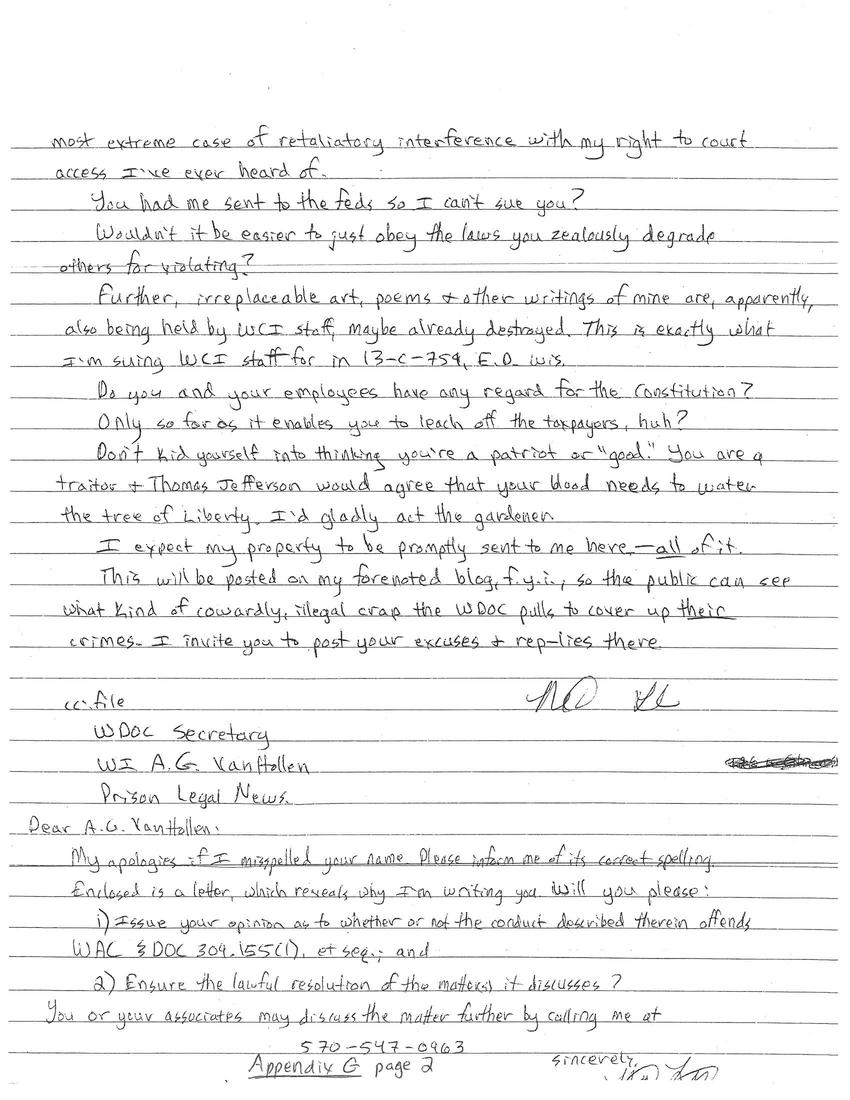 most extreme case of retaliatory interference with my right to court
access I've ever heard of.
You had me sent to the feds so I can't sue you?
Wouldn't it be easier to just obey the laws you zealously degrade
others for violating?
Further, irreplaceable art, poems + other writings of mine are, apparently,
also being held by WCI staff, maybe already destroyed. This is exactly what
I'm suing WCI staff for in 13-C-759, E.D. Wis.
Do you and your employees have any regard for the Constitution?
Only so far as it enables you to leach off the taxpayers, huh?
Don't kid yourself into thinking you're a patriot or "good." You are a
traitor + Thomas Jefferson would agree that your blood needs to water
the tree of Liberty. I'd gladly act the gardener.
I expect my property to be promptly sent to me here,—all of it.
This will be posted on my forenoted blog, f.y.i., so the public can see
what kind of cowardly, illegal crap the WDOC pulls to cover up their
crimes. I invite you to post your excuses + rep-lies there.
cc: file
WDOC Secretary
WI A.G. VanHollen
Prison Legal News.
Dear A.G. VanHollen:
My apologies if I misspelled your name. Please inform me of its correct spelling.
Enclosed is a letter, which reveals why I'm writing you. Will you please:
1) Issue your opinion as to whether or not the conduct described therein offends
WAC § DOC 309.155(1), et seq.; and
2) Ensure the lawful resolution of the matter(s) it discusses?
You or your associates may discuss the matter further by calling me at
570-547-0963
Appendix G page 2
Sincerely,